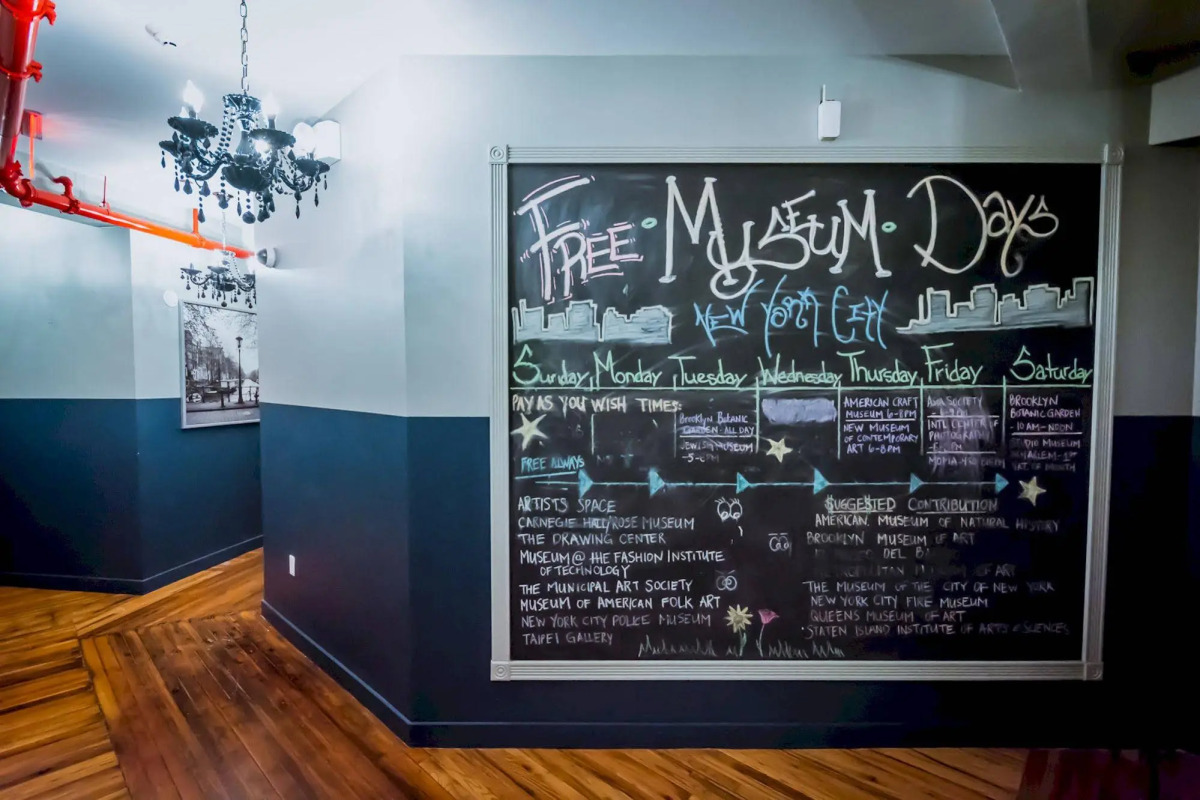 FREE • MUSEUM • DAYS
NEW YORK CITY
Sunday Monday Tuesday Wednesday Thursday Friday Saturday
PAY AS YOU WISH TIMES:
BROOKLYN BOTANIC
GARDEN - ALL DAY
JEWISH MUSEUM
AMERICAN CRAFT
MUSEUM 6-8PM
NEW MUSEUM
OF CONTEMPORARY
ART 6-8PM
ASIA SOCIETY
INTL CENTER OF
PHOTOGRAPHY
BROOKLYN
BOTANIC GARDEN
-10AM-NOON
MUSEUM
FREE ALWAYS
ARTISTS SPACE
CARNEGIE HALL/ROSE MUSEUM
THE DRAWING CENTER
MUSEUM @ THE FASHION INSTITUTE
OF TECHNOLOGY
THE MUNICIPAL ART SOCIETY
MUSEUM OF AMERICAN FOLK ART
NEW YORK CITY POLICE MUSEUM
TAIPEI GALLERY
SUGGESTED CONTRIBUTION
AMERICAN MUSEUM OF NATURAL HISTORY
BROOKLYN MUSEUM OF ART
DEL
OF ART
THE MUSEUM OF THE CITY OF NEW YORK
NEW YORK CITY FIRE MUSEUM
QUEENS MUSEUM OF ART
STATEN ISLAND INSTITUTE OF ARTS & SCIENCES